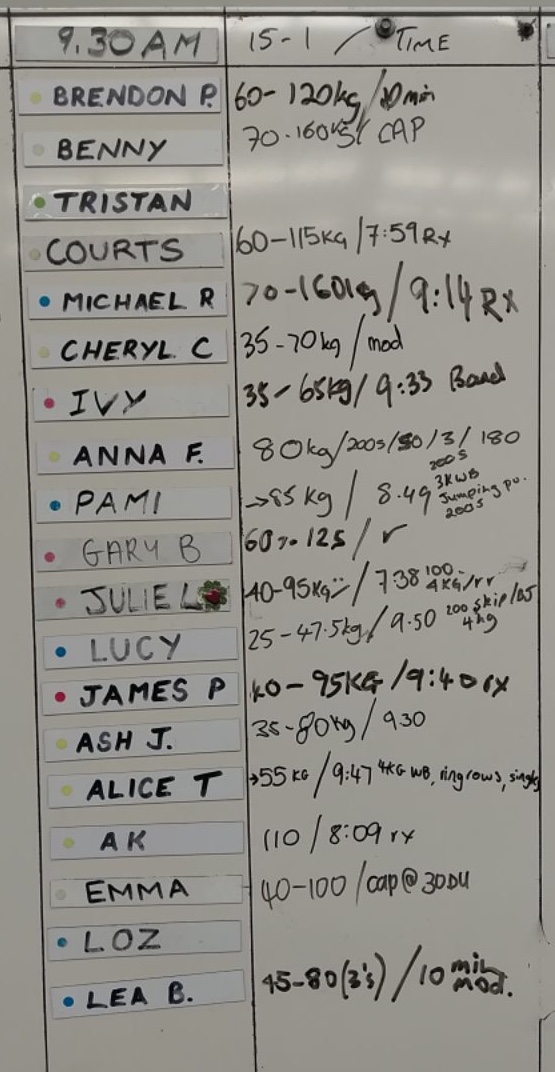 9.30AM 15-1 / TIME
BRENDON P. 60-120kg / 10min
BENNY 70-160kg / CAP
TRISTAN
COURTS 60-115KG / 7:59 Rx
MICHAEL R 70-160kg / 9:14 RX
CHERYL C 35-70kg / mod
IVY 35-65kg / 9:33 Band
ANNA F. 80kg/200s/50/3/180
PAMI →85 kg / 8.49 200s
3KWB
Jumping pu.
200s
GARY B 125 / r
JULIE L 40-95KG / 7:38 100
4KG/rr
LUCY 25-47.5kg / 9.50 200 skip/
4kg
JAMES P 40-95KG / 9:40 rx
ASH J. 35-80kg / 9.30
ALICE T →55 KG / 9:47 4KG WB, ring rows, singles
AK 110 / 8:09 rx
EMMA 40-100 / cap@30DU
LOZ
LEA B. 45-80(3's) / 10 min
mod.